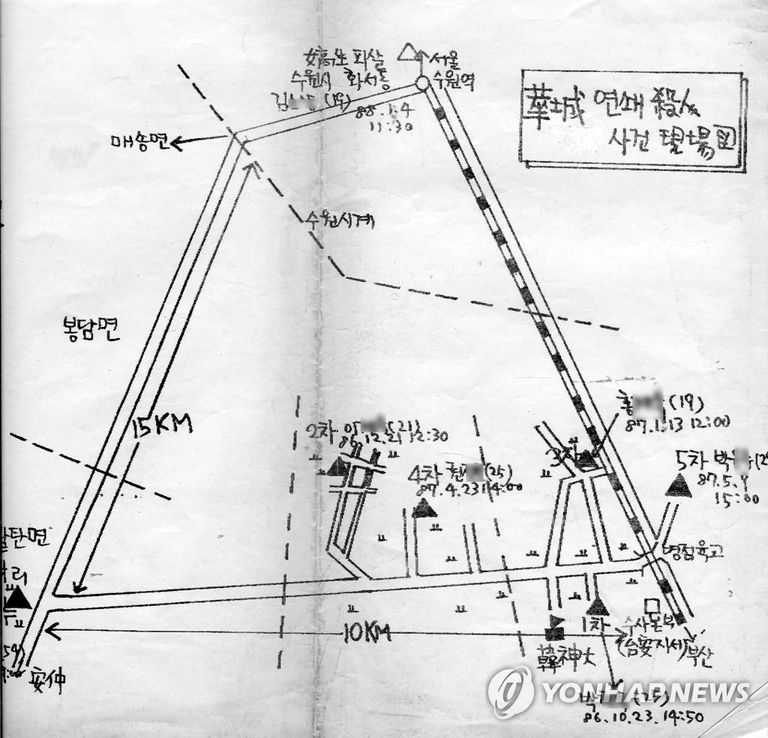 華城 연쇄 殺人
사건 現場図
女高生 피살
수원시 화서동
김 (19)
88.1.4
11:30
서울
수원역
매송면
수원시계
봉담면
15KM
2차 이 (21)
86.12.21 12:30
4차 현 (25)
87.4.23 14:00
홍 (19)
87.1.13 12:00
3차
5차 박
87.5.9
15:00
병점육교
탄면
리
10KM
安仲
韓神大
1차
수사본부
(台安지서)
부산
박 (25)
86.10.23 14:50
YONHAPNEWS